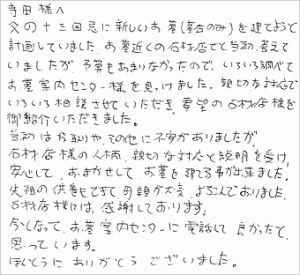 寺田様へ
父の十三回忌に新しいお墓(墓石のみ)を建てようと
計画していました。お墓近くの石材店でと当初、考えて
いましたが予算もあまりなかったので、いろいろ調べて
お墓案内センター様を見つけました。親切な対応で
いろいろ相談させていただき、要望の石材店様を
御紹介いただきました。
当初は段取りやその他に不安がありましたが、
石材店様の人柄、親切な対応と説明を受け、
安心して、おまかせして、お墓を建てる事が出来ました。
先祖の供養もできて母親が大変よろこんでおりました。
石材店様には感謝しております。
今となって、お墓案内センターに電話して良かったと
思っています。
ほんとうにありがとうございました。